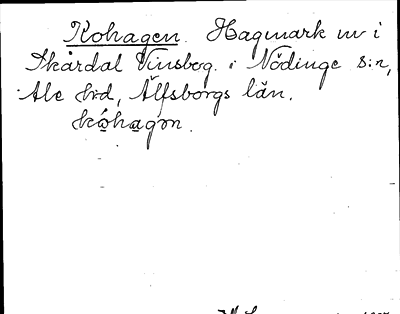 Kohagen. Hagmark m i
Skårdal Vinsbog. i Nödinge s:n,
Ale hrd, Älfsborgs län.
kóhagən.